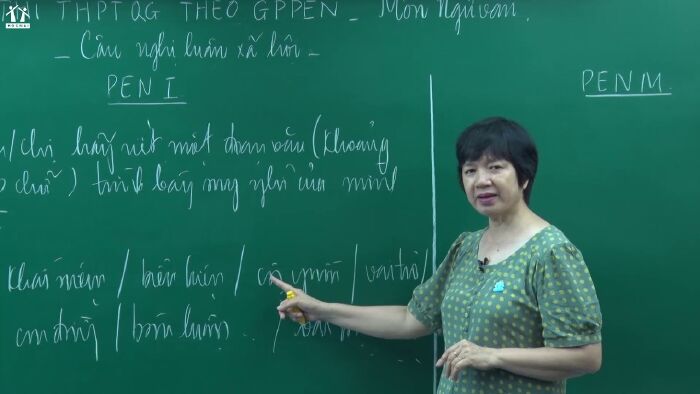 HOCMAI
THPT QG THEO GPPEN _ Môn Ngữ văn.
_ Câu nghị luận xã hội _
PEN I
PEN M
/chị hãy viết một đoạn văn (khoảng
chữ) trình bày suy nghĩ của mình
Khái niệm / biểu hiện / / vai trò /
/ bàn luận ... /